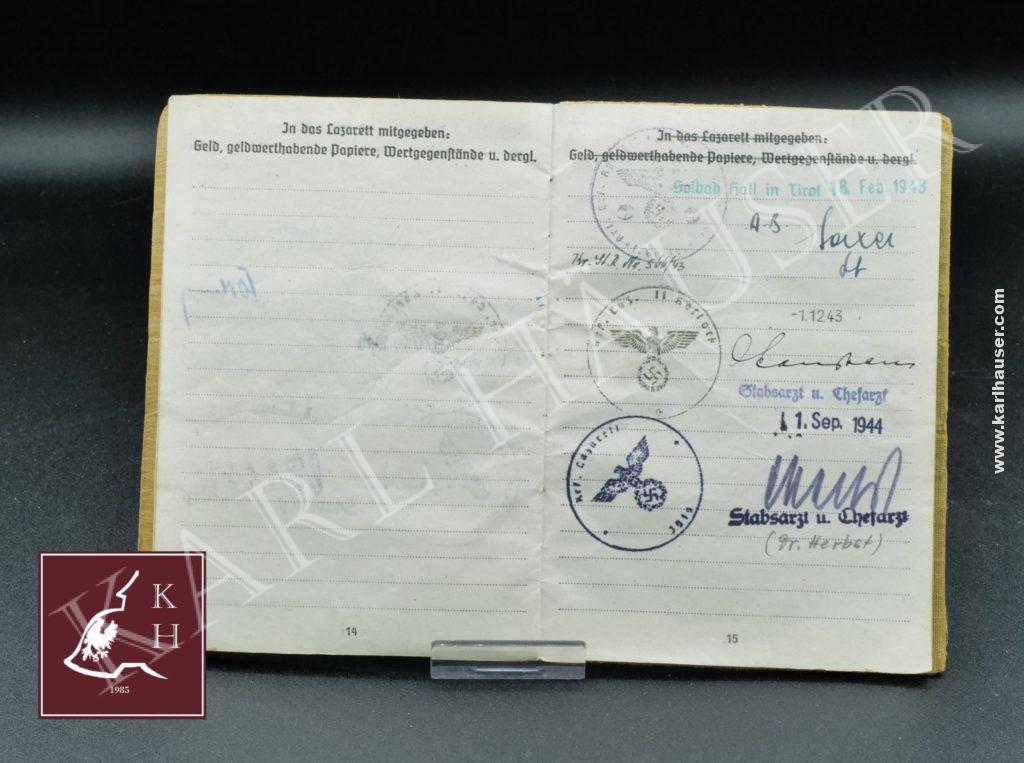 In das Lazarett mitgegeben:
Geld, geldwerthabende Papiere, Wertgegenstände u. dergl.
14
In das Lazarett mitgegeben:
Geld, geldwerthabende Papiere, Wertgegenstände u. dergl.
Solbad Hall in Tirol 18. Feb. 1943
Kr. Nr. 566/43
-1.12.43
Laz. II
Stabsarzt u. Chefarzt
11. Sep. 1944
Lazarett
Stabsarzt u. Chefarzt
(Dr. Herbst)
15
KARL HAUSER
www.karlhauser.com
K
H
1985